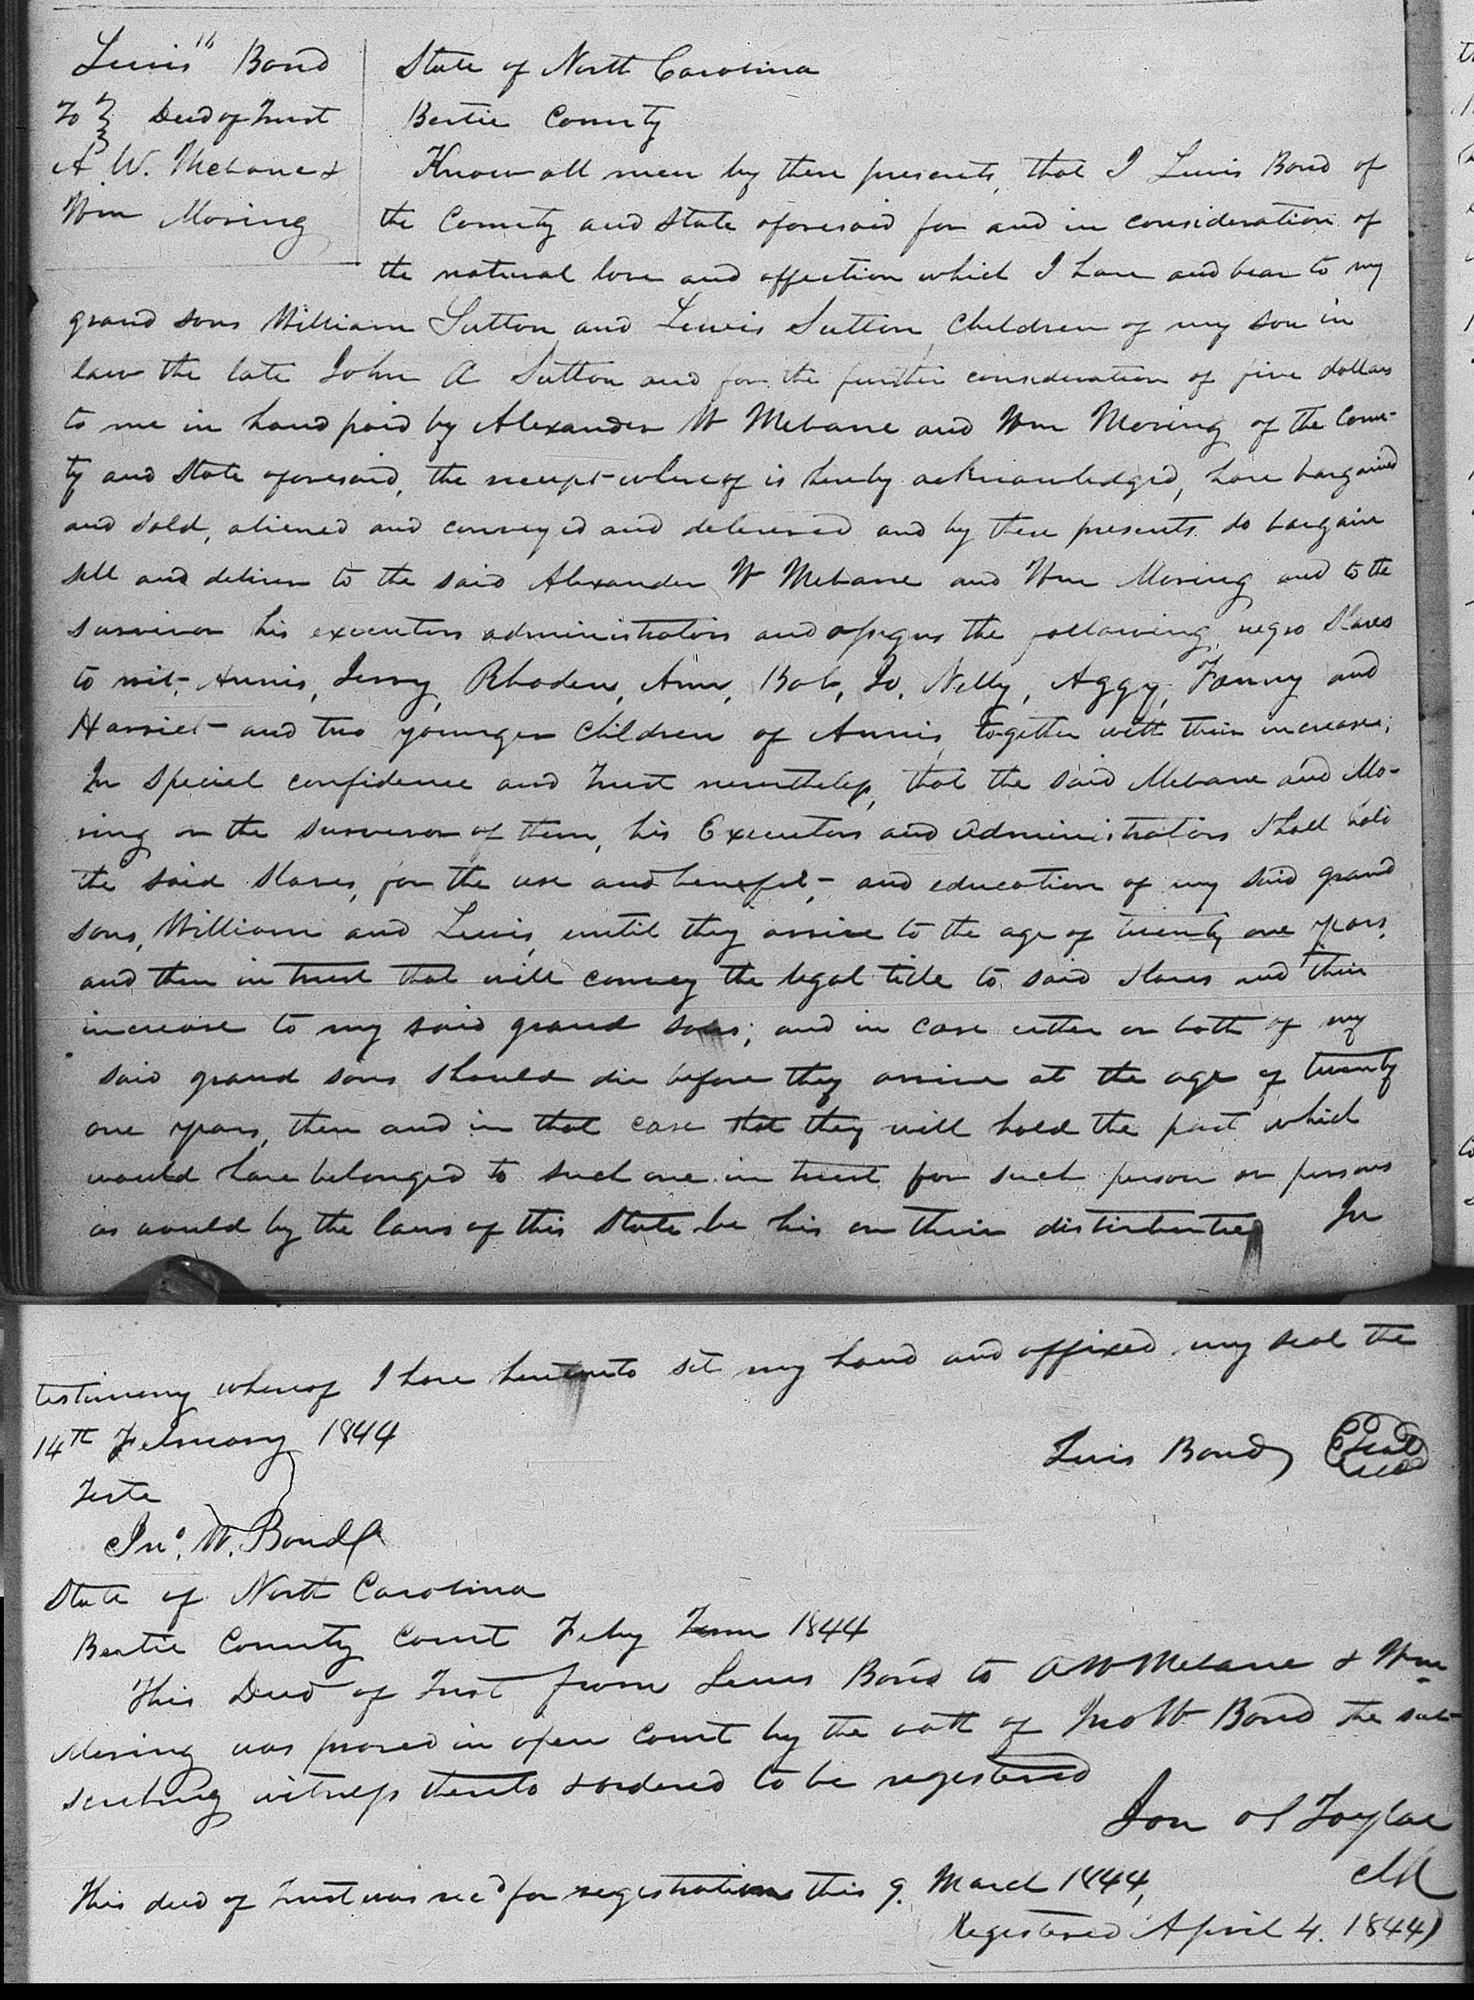 Lewis Bond
To Deed of Trust
A W. Mebane &
Wm Moring
State of North Carolina
Bertie County
Know all men by these presents, that I Lewis Bond of
the County and State aforesaid for and in consideration of
the natural love and affection which I have and bear to my
grand sons William Sutton and Lewis Sutton, Children of my son in
law the late John A Sutton and for the further consideration of five dollars
to me in hand paid by Alexander W Mebane and Wm Moring of the Coun-
ty and State aforesaid, the receipt whereof is hereby acknowledged, have bargained
and sold, aliened and conveyed and delivered and by these presents do bargain
sell and deliver to the said Alexander W Mebane and Wm Moring and to the
survivor his executors administrators and assigns the following negro slaves
to wit, Annis, Jenny, Rhoden, Ann, Bob, Jo, Nelly, Aggy, Fanny and
Harriet and two younger children of Annis, together with their increase;
In special confidence and trust nevertheless, that the said Mebane and Mo-
ring or the survivor of them, his Executors and Administrators shall hold
the said slaves, for the use and benefit, and education of my said grand
sons, William and Lewis, until they arrive to the age of twenty one years,
and then in trust that will convey the legal title to said slaves and their
increase to my said grand sons; and in case either or both of my
said grand sons should die before they arrive at the age of twenty
one years, then and in that case that they will hold the part which
would have belonged to such one in trust for such person or persons
as would by the laws of this State be his or their distributees In
testimony whereof I have hereunto set my hand and affixed my seal the
14th February 1844
Lewis Bond Seal
Teste
Jno. W. Bond
State of North Carolina
Bertie County Court Feby Term 1844
This Deed of Trust from Lewis Bond to A W Mebane & Wm
Moring was proved in open Court by the oath of Jno W Bond the sub-
scribing witness thereto & ordered to be registered
Jon S Taylor
Clk
This deed of trust was recd for registration this 9. March 1844,
Registered April 4. 1844)